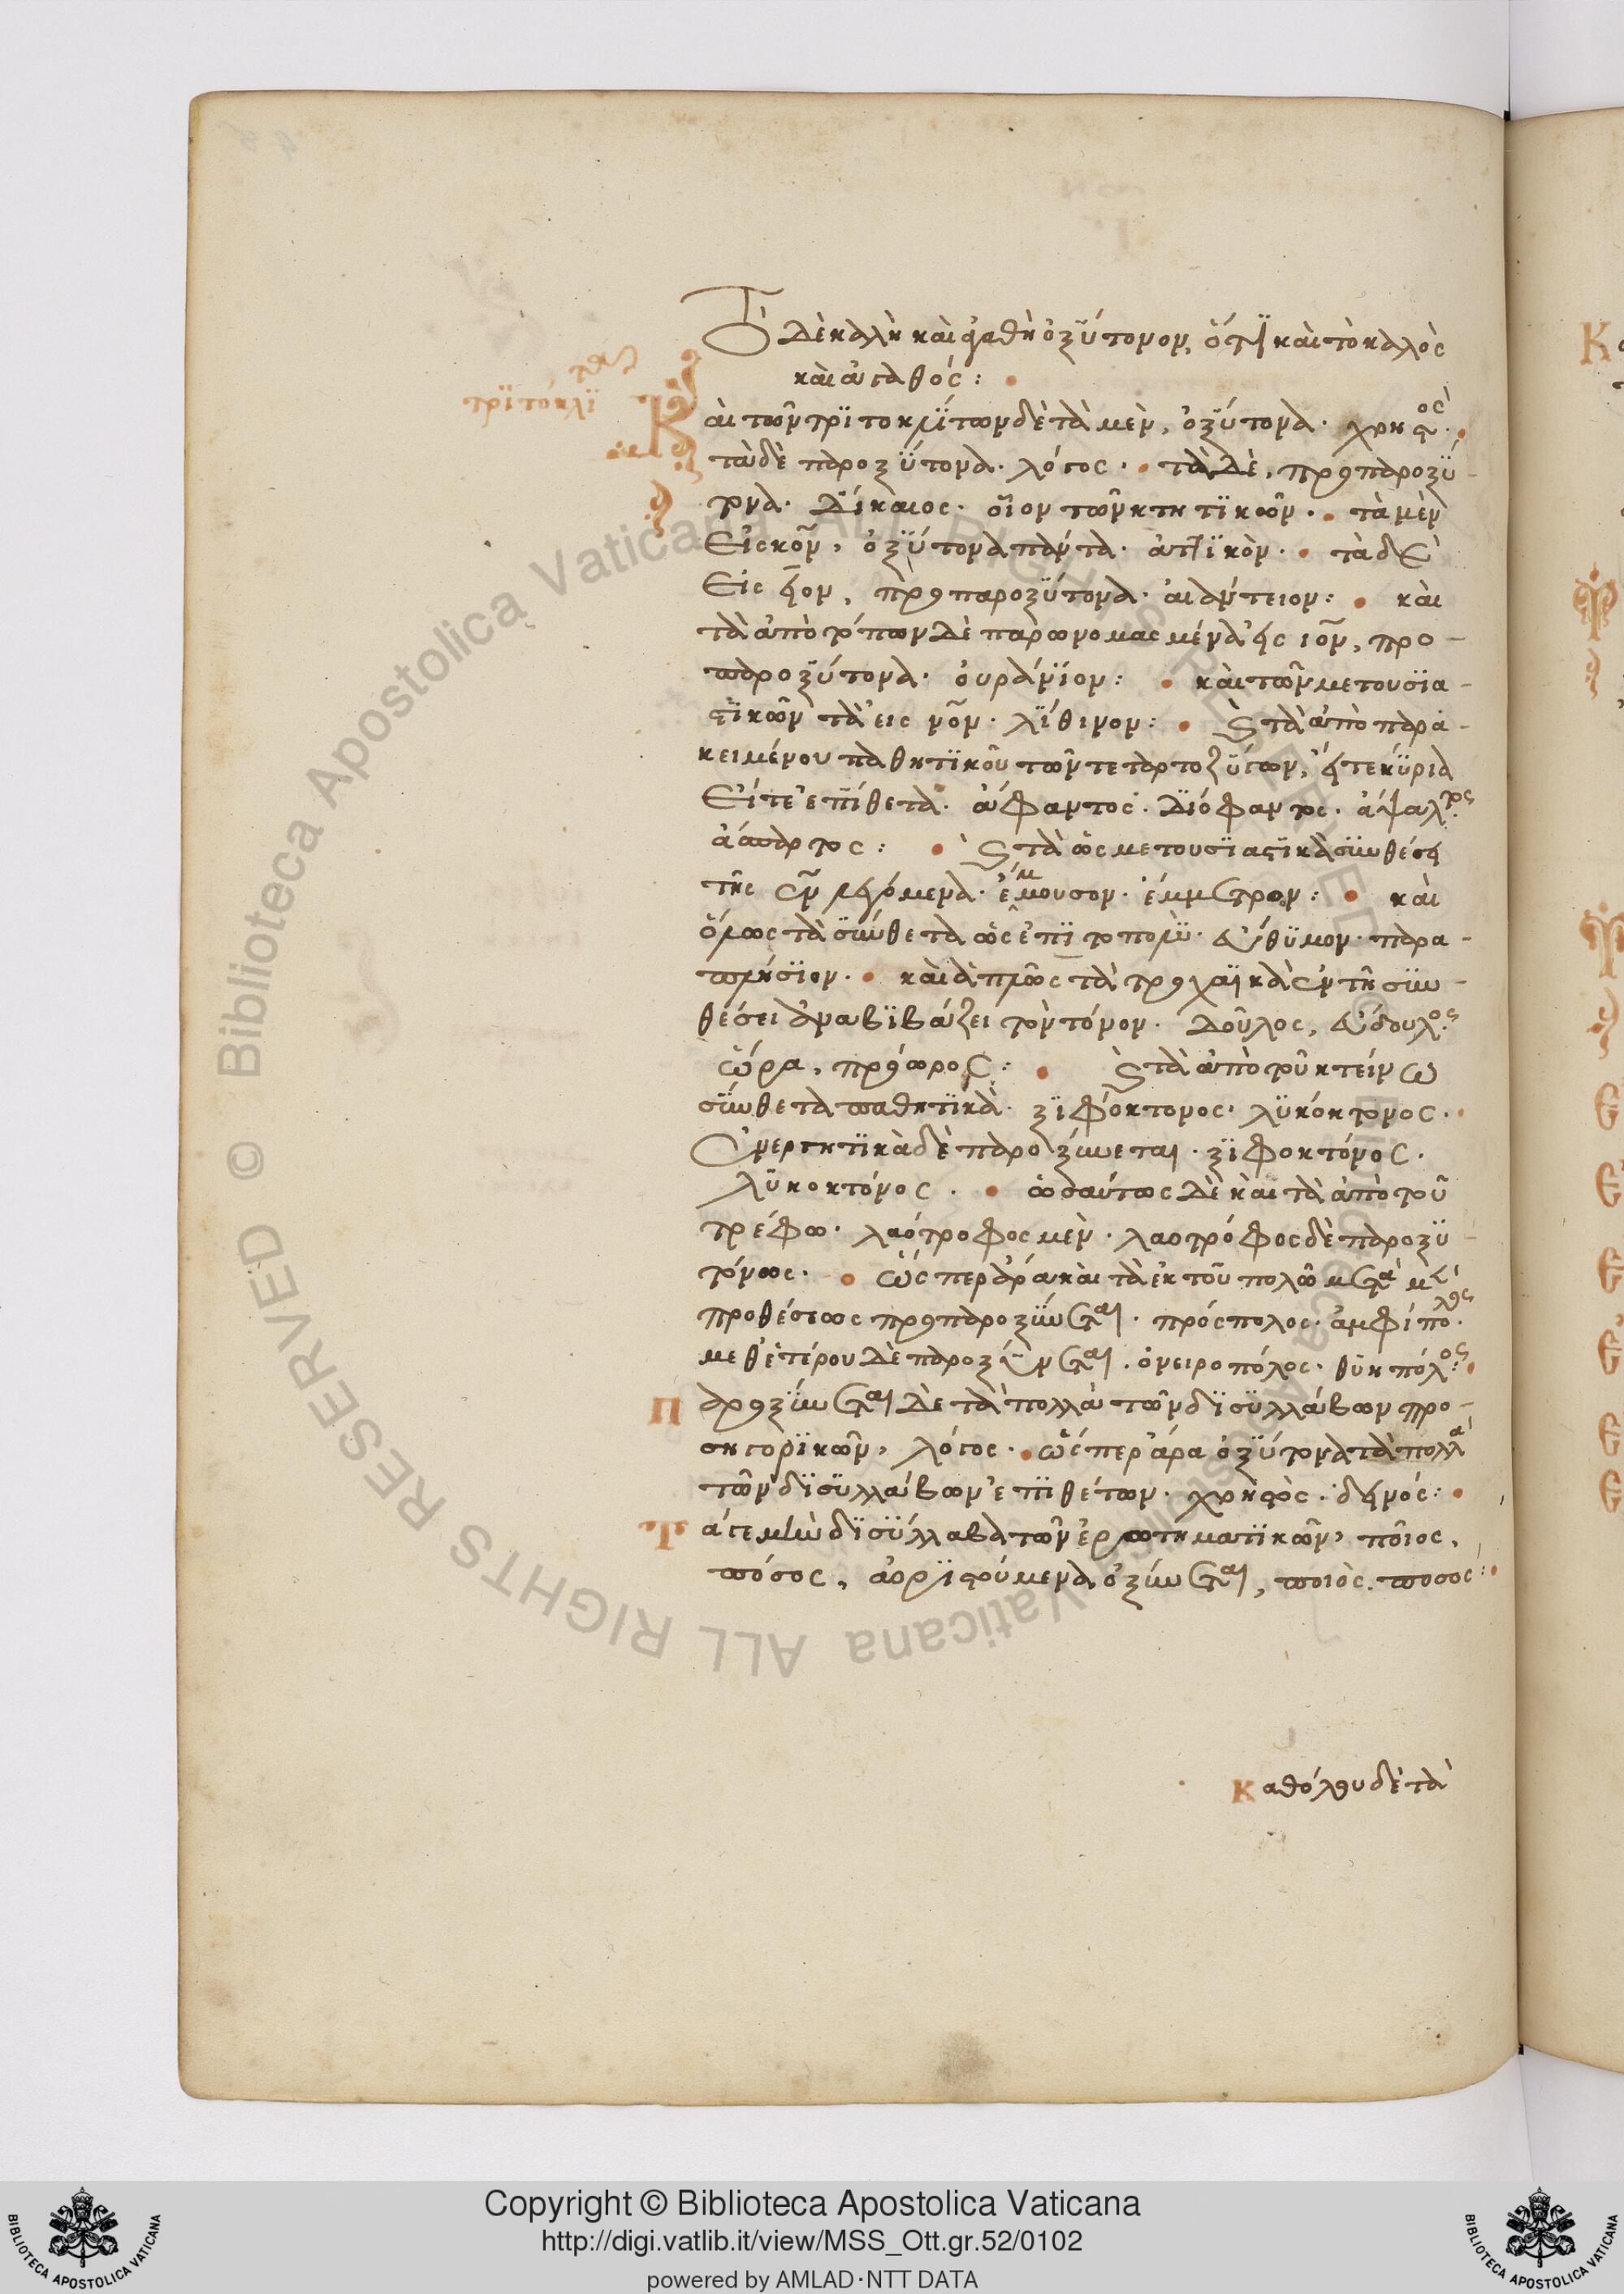 Τὸ δὲ καλὴ καὶ ἀγαθὴ ὀξύτονον, ὅτι καὶ τὸ καλὸς
καὶ ἀγαθός:
Καὶ τῶν τρϊτοκλίτων δὲ τὰ μὲν, ὀξύτονα. χρηστός.
τὰ δὲ παροξύτονα. λόγος. τὰ δὲ, προπαροξύ-
τονα. δίκαιος. οἷον τῶν κτητϊκῶν. τὰ μὲν
εἰς κον, ὀξύτονα πάντα. ἀττϊκὸν. τὰ δὲ
εἰς ειον, προπαροξύτονα. αἰάντειον: καὶ
τὰ ἀπὸ τόπων δὲ παρωνομασμένα εἰς ιον, προ-
παροξύτονα. οὐράνϊον: καὶ τῶν μετουσϊα-
στϊκῶν τὰ εις νον. λίθινον: καὶ τὰ ἀπὸ παρα-
κειμένου παθητϊκοῦ τῶν τεταρτοζύγων, εἴτε κύρια
εἴτε ἐπίθετα. ἄφαντος. Διόφαντος. ἄψαλτος.
ἄσπαρτος: καὶ τὰ ὡς μετουσϊαστϊκὰ συνθέσει
τῆς ἐν λεγόμενα. ἔμμουσον. ἔμμετρον: καὶ
ὅλως τὰ σύνθετα ὡς ἐπὶ τοπολύ. εὔθυμον. παρα-
πλήσϊον. καὶ ἁπλῶς τὰ τροχαϊκὰ ἐν τῇ συν-
θέσει ἀναβιβάζει τὸν τόνον. δοῦλος, εὔδουλος.
ὥρα, πρόωρος: καὶ τὰ ἀπὸ τοῦ κτείνω
σύνθετα παθητϊκὰ. ξιφόκτονος. λυκόκτονος.
Ἐνεργητϊκὰ δὲ παροξύνεται. ξιφοκτόνος.
λυκοκτόνος. ὡσαύτως δὲ καὶ τὰ ἀπὸ τοῦ
τρέφω. λαότροφος μὲν. λαοτρόφος δὲ παροξυ-
τόνως. ὥσπερ ἄρα καὶ τὰ ἐκ τοῦ πολῶ μετὰ μὲν
προθέσεως προπαροξύνεται. πρόσπολος. ἀμφίπολος.
μεθ' ἑτέρου δὲ παροξύνεται. ὀνειροπόλος. θυηπόλος:
Παροξύνεται δὲ τὰ πολλὰ τῶν δϊσυλλάβων προ-
σηγορϊκῶν, λόγος. ὥσπερ ἄρα ὀξύτονα τὰ πολλὰ
τῶν δϊσυλλάβων ἐπιθέτων. χρηστὸς. δεινός:
Τά γε μὴν δϊσύλλαβα τῶν ἐρωτηματϊκῶν, ποῖος,
πόσος, ἀοριστούμενα ὀξύνεται, ποιὸς. ποσος:
Καθόλου δὲ τὰ
Copyright © Biblioteca Apostolica Vaticana
http://digi.vatlib.it/view/MSS_Ott.gr.52/0102
powered by AMLAD·NTT DATA